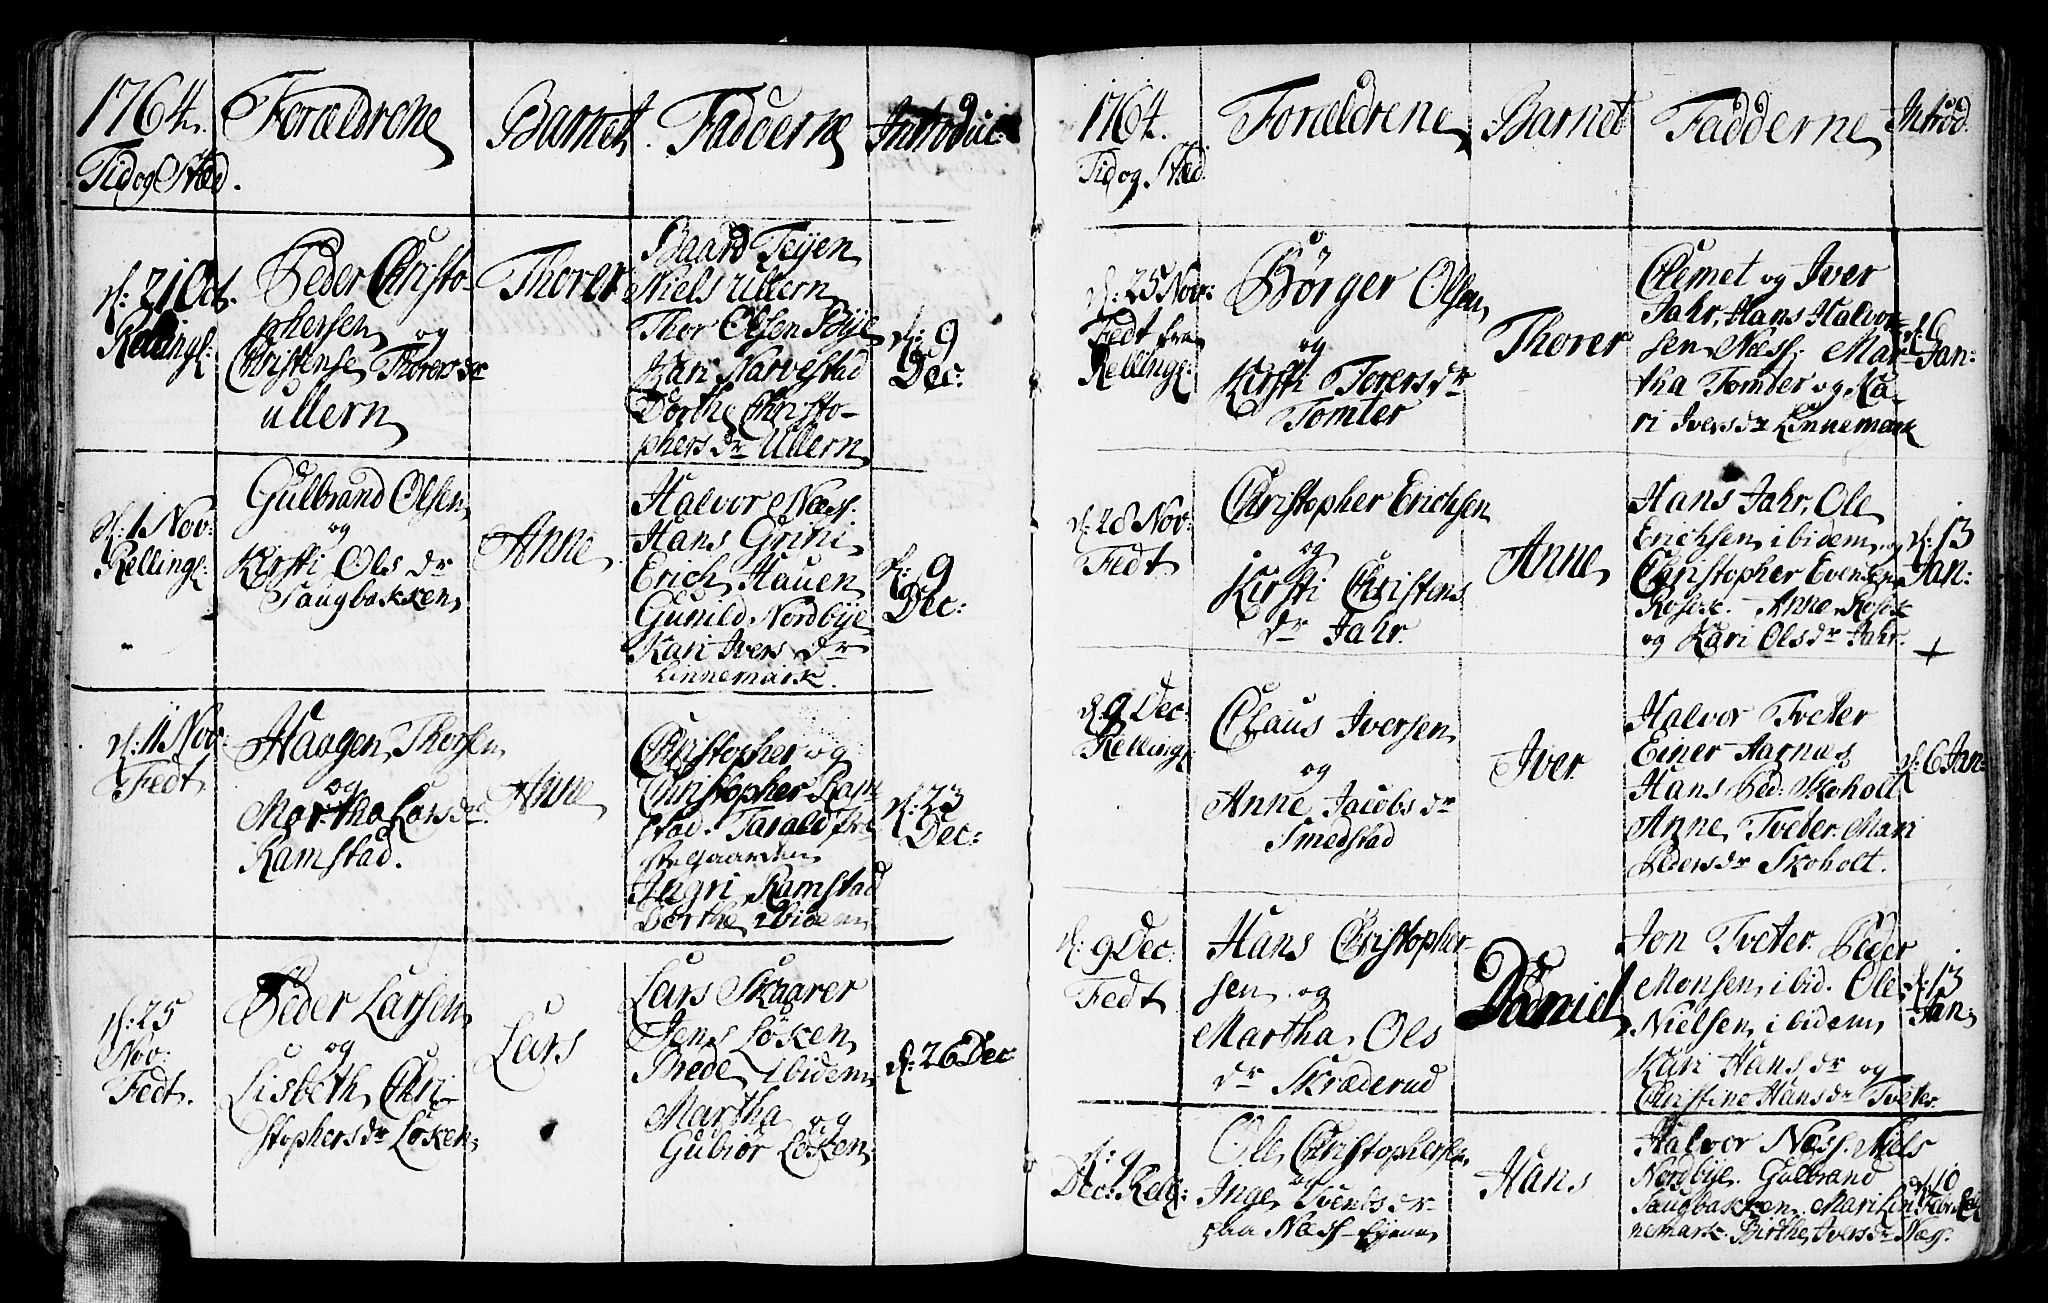 1764.
Tid og Stæd.
Forældrene
Barnet.
Fadderne
Introduc:
d: 21 Oct.
Rellingl:
Peder Christo-
phersen og
Christense Thorers dr
Ullern
Thorer
Baard Teijen
Niels Ullern
Thor Olsen Bije
Kari Narvestad
Dorthe Christo-
phers dr Ullern
d: 9
Dec:
d: 1 Nov:
Rellingl:
Gulbrand Olsen
og
Kirsti Ols dr
Saugbakken
Anne
Halvor Næss.
Hans Grini
Erich Hauen
Gunild Nordbije
Kari Ivers dr
Linnemark.
d: 9
Dec:
d: 11 Nov:
Fedt
Haagen Thorsen
og
Martha Lars dr
Ramstad.
Anne
Christopher og
Christopher Ram-
stad. Tarald Præ
stegaarden
Ingri Ramstad
Dorthe ibidem
d: 23
Dec:
d: 25
Nov:
Fedt.
Peder Larsen
og
Lisbeth Chri-
stophers dr Løken
Lars
Lars Skaarer
Jens Løken
Brede ibidem
Martha og
Gubiør Løken
d: 26 Dec
1764.
Tid og Stæd.
Forældrene
Barnet
Fadderne
Introd.
d: 25 Nov:
Fedt fra
Rellingl:
Børger Olsen
og
Kirsti Torers dr
Tomter
Thorer
Clemet og Iver
Jahr, Hans Halvor-
sen Næss. Mar-
tha Tomter og Ka-
ri Ivers dr Linnemark
d: 6
Jan:
d: 28 Nov:
Fedt
Christopher Erichsen
og
Kirsti Christens
dr Jahr.
Anne
Hans Jahr, Ole
Erichsen ibidem og
Christopher Evensen
Kari Ols dr Jahr.
d: 13
Jan:
+
d. 9 Dec:
Rellingl
Claus Iversen
og
Anne Jacobs dr
Smedstad
Iver
Halvor Tveter
Einer Aarnæs
Hans Ped: Skoholt
Anne Tveter. Mari
Peders dr Skoholt.
d: 6 Jan:
d: 9 Dec:
Fedt
Hans Christopher-
sen og
Martha Ols
dr Skræderud
Daniel
Jon Tveter. Peder
Monsen ibid. Ole
Nielsen ibidem
Kari Hans dr og
Christine Hans dr Tveter.
d: 13
Jan:
d: 9
Dec: Rell:
Ole Christophersen
og
Inge Svends dr
paa Næss-Ejene
Hans
Halvor Næss. Niels
Nordbije. Gulbrand
Saugbakken. Mari Lin-
nemark. Birthe Ivers dr Næss.
d: 10